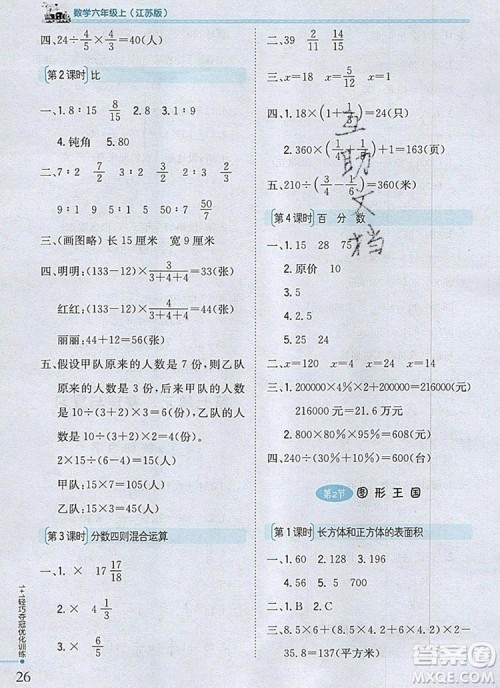 数学六年级上(江苏版)
四、24÷3/4×4/3=40(人)
第2课时 比
一、1. 8∶15 8/15 2. 9/4 3. 1∶9
4. 钝角 5. 80
二、7∶2 7/2 9∶7 9/7
9∶5 9/5 1∶1 1
三、(画图略) 长15厘米 宽9厘米
四、明明:(133-12)×3/(3+4+4)=33(张)
红红:(133-12)×4/(3+4+4)=44(张)
丽丽:44+12=56(张)
五、假设甲队原来的人数是7份,则乙队
原来的人数是3份,乙队现在的人数是
10÷(3+2)×3=6(份),乙队的人数:
2×15÷(6-3)×3=30(人)
甲队:15×7=105(人)
乙队:15×3=45(人)
第3课时 分数四则混合运算
一、1. × 2. × 3. ×
二、4 1/2 4 1/2 6/5
二、39
三、x=18 x=5/12 x=16
四、1. 18×(1+1/3)=24(只)
2. 360×(1/4+1/5)+1=163(页)
五、210÷(3/4-1/6)=360(米)
第4课时 百分数
一、1. 15 28 75
2. 原价 10
3. 5
4. 2.5
5. 0.29
二、x=120 x=4 x=20
三、1. 200000×4%×2+200000=216000(元)
216000元=21.6万元
2. 500÷10%×30%=1500(元)
四、240÷(10%+30%)=600(台)
第2节 图形王国
第1课时 长方体和正方体的表面积
一、1. 60 2. 128 3. 196 4. 7
二、1. D 2. C
三、8.5×6+(8.5×4+6×4)×2-
35.8=137(平方米)
互助文档
1+1轻巧夺冠优化训练
26
答案圈
MXQE.COM